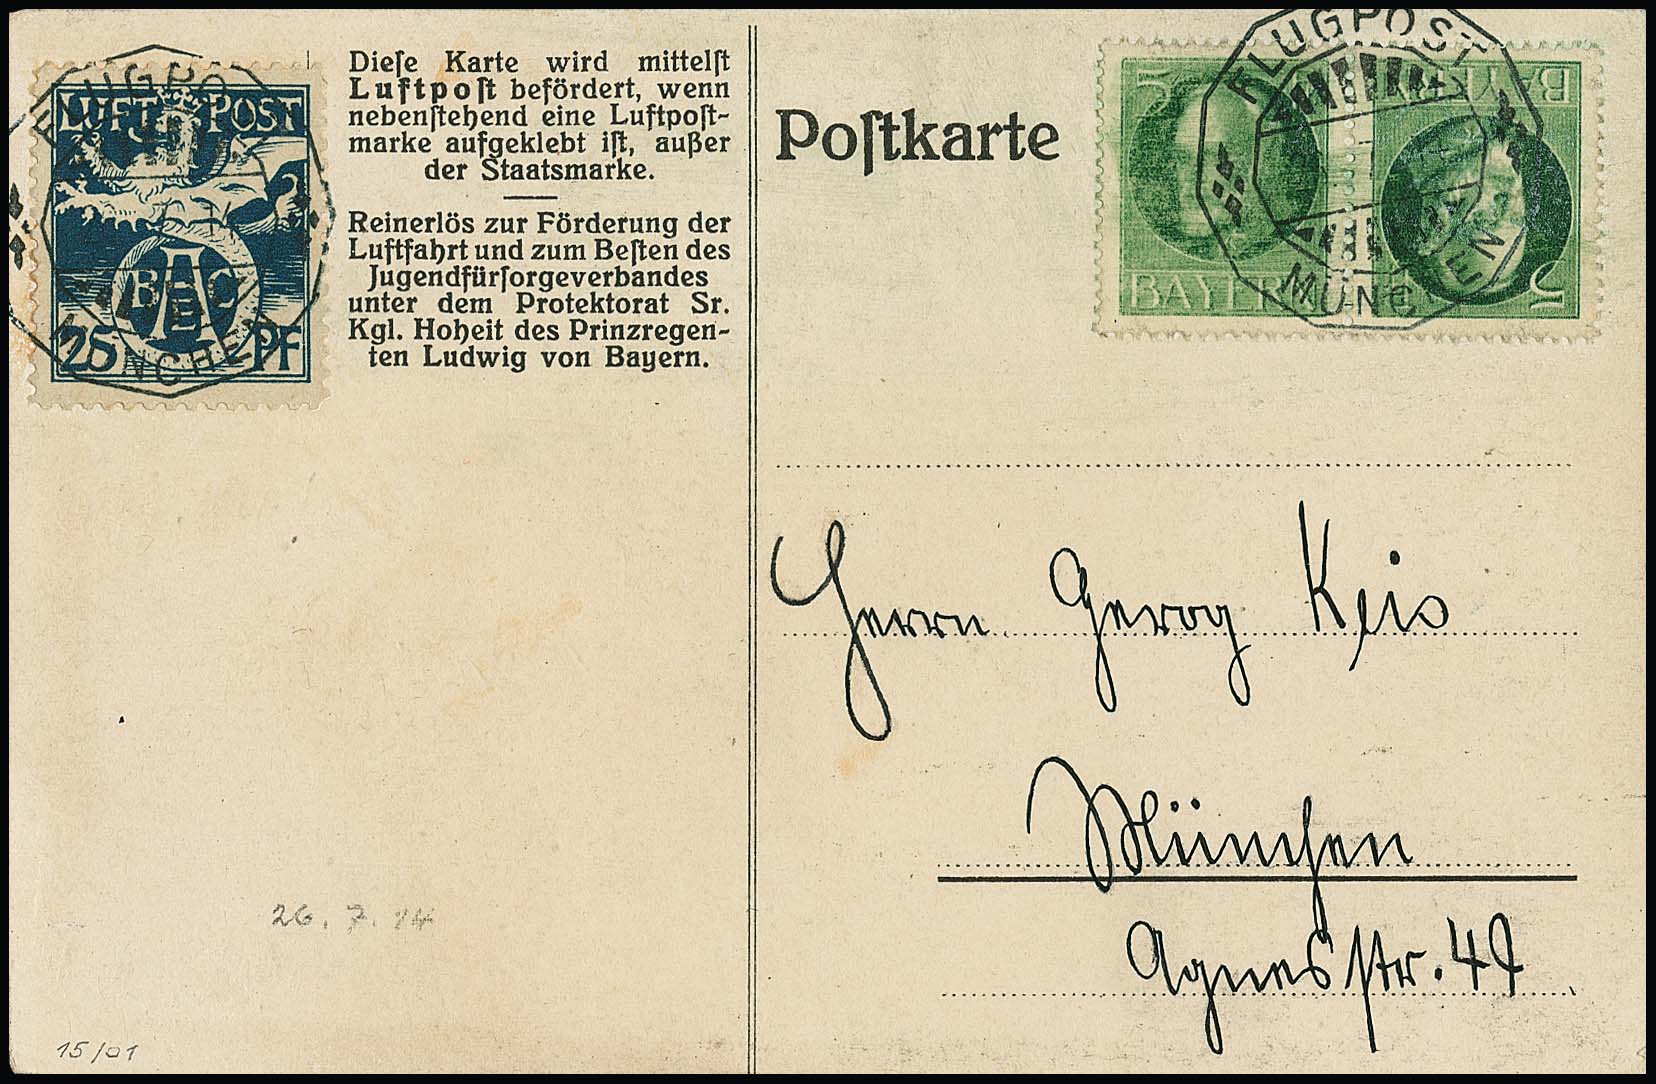 FLUGPOST
LUFT POST
BAEC
25 PF
MÜNCHEN
Dieſe Karte wird mittelſt
Luftpoſt befördert, wenn
nebenſtehend eine Luftpoſt-
marke aufgeklebt iſt, außer
der Staatsmarke.
Reinerlös zur Förderung der
Luftfahrt und zum Beſten des
Jugendfürſorgeverbandes
unter dem Protektorat Sr.
Kgl. Hoheit des Prinzregen-
ten Ludwig von Bayern.
Poſtkarte
FLUGPOST
5
BAYERN
BAYERN
5
MÜNCHEN
Herrn Georg Keis
München
Agnesstr. 49
26. 7. 14
15/01